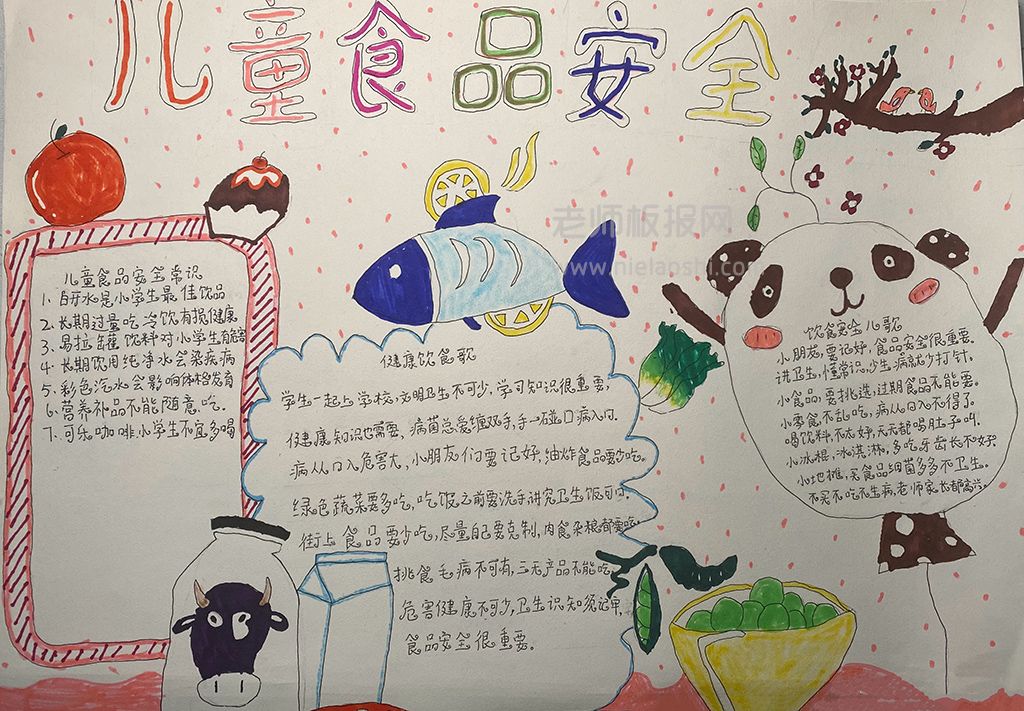 儿童食品安全
老师板报网
儿童食品安全常识
1、白开水是小学生最佳饮品
2、长期过量吃冷饮有损健康
3、易拉罐饮料对小学生有危害
4、长期饮用纯净水会染疾病
5、彩色汽水会影响体格发育
6、营养补品不能随意吃.
7、可乐咖啡小学生不宜多喝
健康饮食歌
学生一起上学校,文明卫生不可少,学习知识很重要,
健康知识也需要、病菌总爱缠双手,手一碰口病入口.
病从口入危害大,小朋友们要记好,油炸食品要少吃.
绿色蔬菜要多吃,吃饭之前要洗手,讲究卫生饭可口.
街上食品要少吃,尽量自己要克制,肉食杂粮都要吃.
挑食毛病不可有,三无产品不能吃,
危害健康不可少,卫生识知须记牢
食品安全很重要.
饮食安全儿歌
小朋友,要记好,食品安全很重要.
讲卫生,懂常识,少生病就少打针.
小食品,要挑选,过期食品不能要.
小零食不乱吃,病从口入不得了.
喝饮料,不太好,天天都喝肚子叫.
小冰棍,冰淇淋,多吃牙齿长不好
小地摊,买食品细菌多多不卫生.
不买不吃不生病,老师家长都高兴.